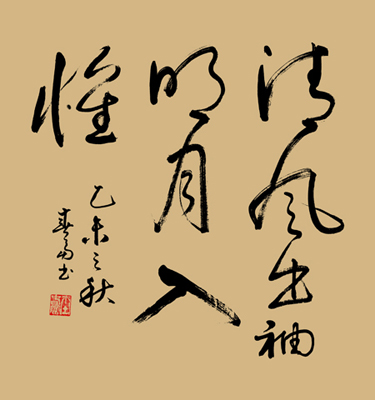 清风出袖
明月入
懷
乙未之秋
书